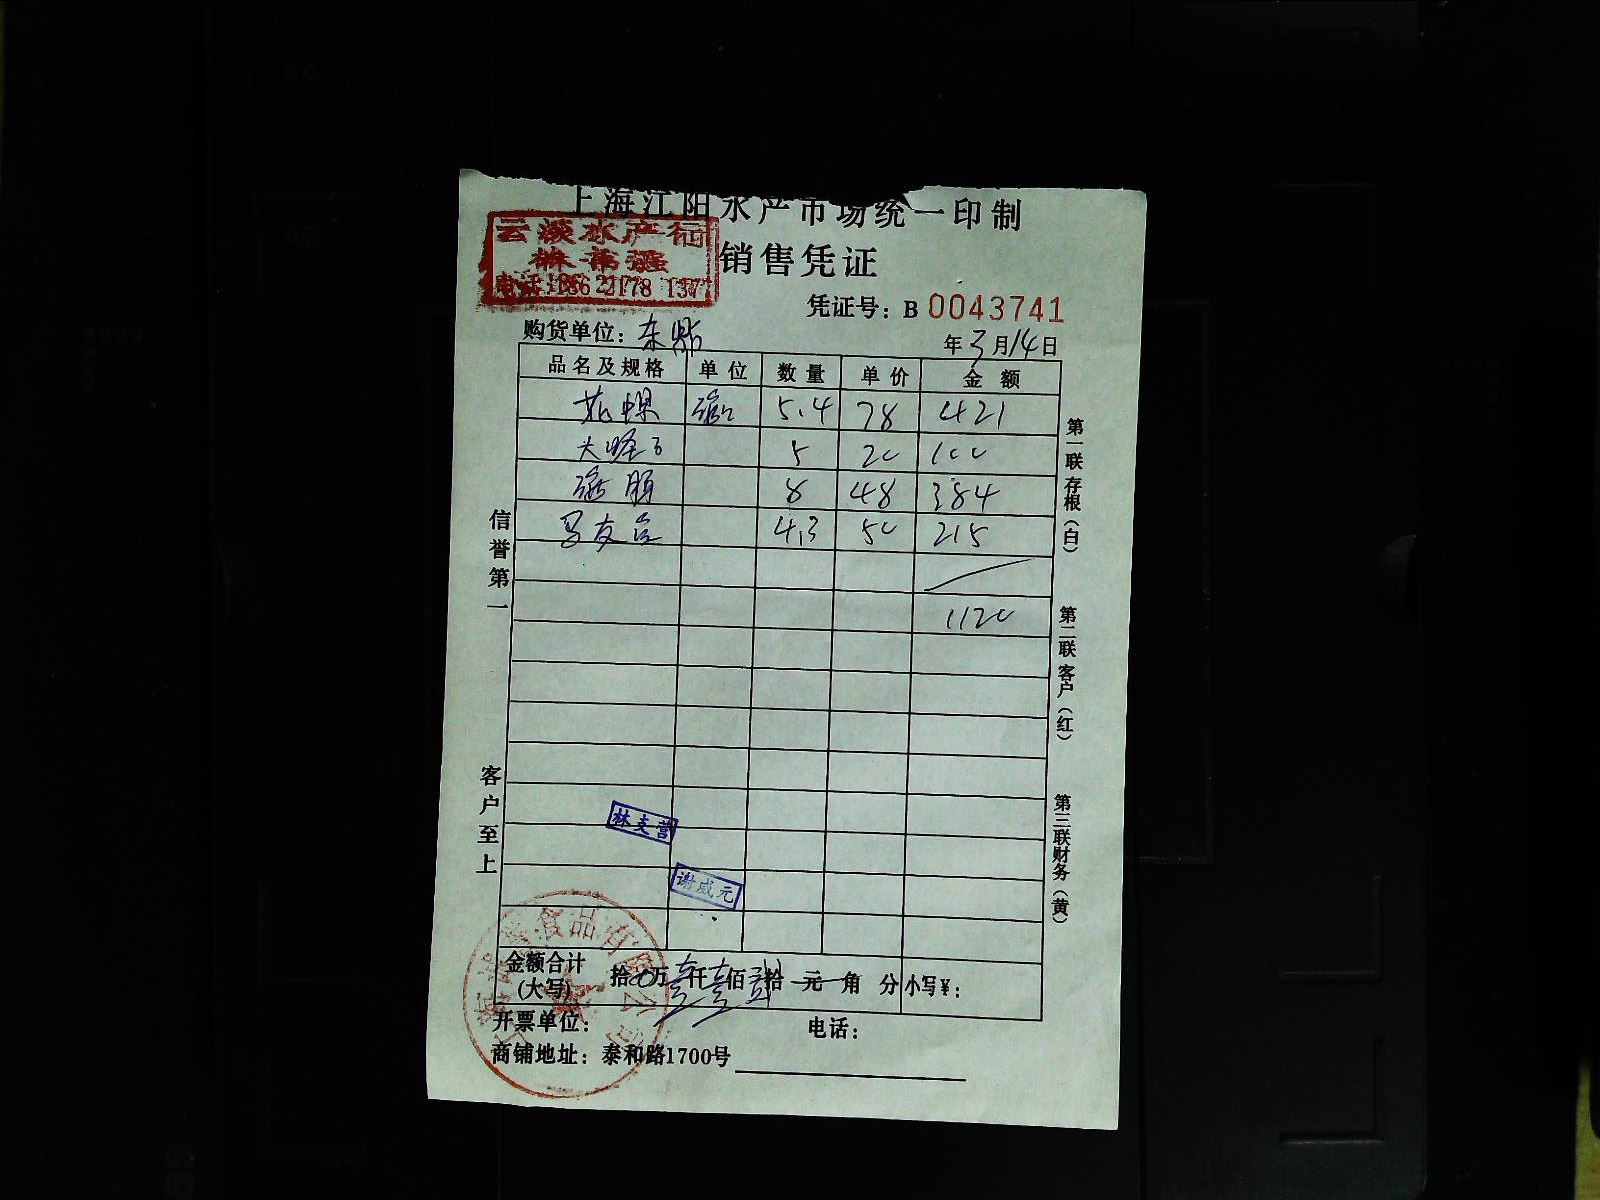 上海江阳水产市场统一印制
云淡水产行
销售凭证
电话:186 2178 137
凭证号：B 0043741
购货单位：东鼎
年3月14日
品名及规格 单位 数量 单价 金额
花螺 5.4 78 421
大 5 20 100
8 48 384
4.3 50 215
1120
信誉第一
客户至上
第一联 存根（白）
第二联 客户（红）
第三联 财务（黄）
林支营
谢成元
食品有限公司
金额合计(大写) 拾万壹仟壹佰贰拾元角分 小写¥：
开票单位： 电话：
商铺地址：泰和路1700号